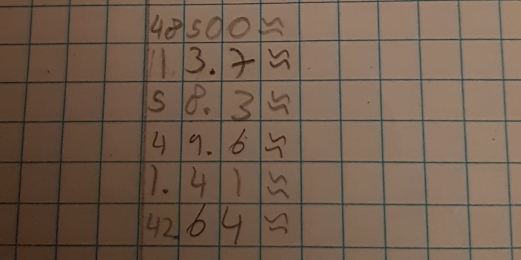 48500≈
113.7≈
58.3≈
49.6≈
1.41≈
42.64≈